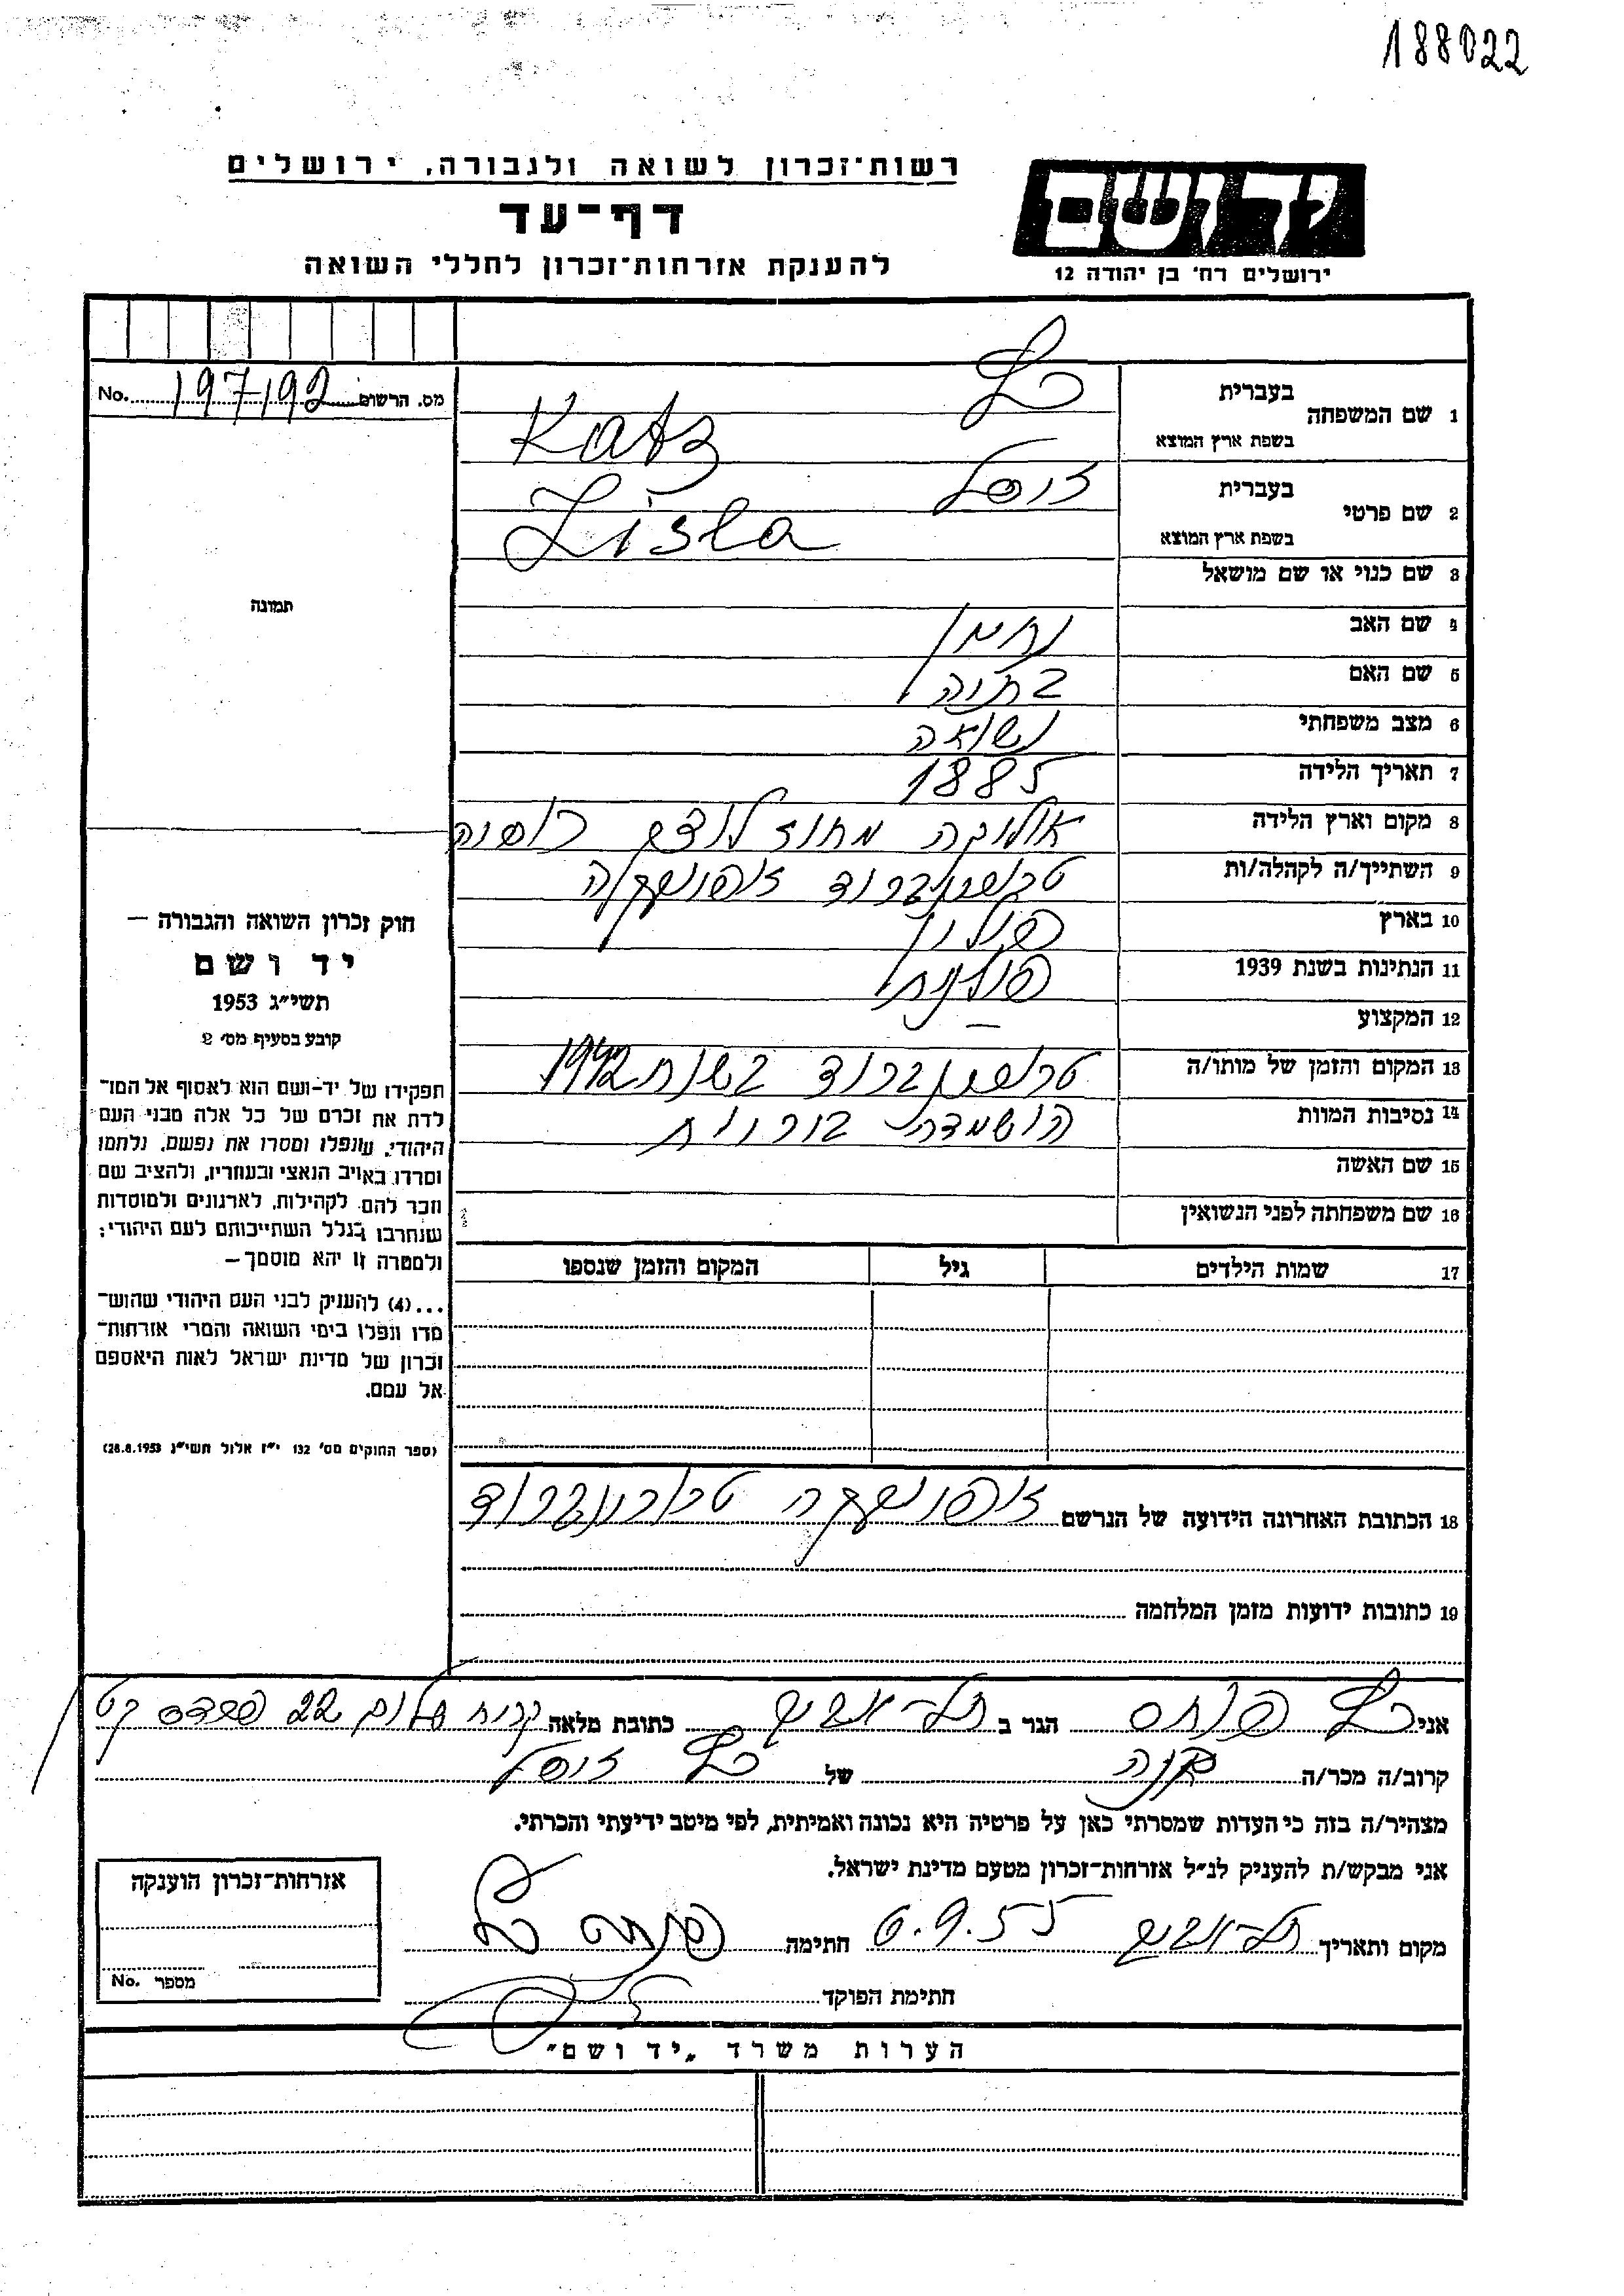 188022
רשות־זכרון לשואה ולגבורה, ירושלים
דף־עד
להענקת אזרחות־זכרון לחללי השואה
יד ושם
ירושלים רח׳ בן יהודה 12
מס. הרשום 197192 No.
1 שם המשפחה בעברית כץ
בשפת ארץ המוצא Katz
2 שם פרטי בעברית זיסל
בשפת ארץ המוצא Zisla
3 שם כנוי או שם מושאל
4 שם האב נחמן
5 שם האם בתיה
6 מצב משפחתי נשואה
7 תאריך הלידה 1885
8 מקום וארץ הלידה מחוז לודצק רוסיה
9 השתייך/ה לקהלה/ות
10 בארץ פולין
11 הנתינות בשנת 1939 פולנית
12 המקצוע —
13 המקום והזמן של מותו/ה בשנת 1942
14 נסיבות המוות הושמדה
15 שם האשה
16 שם משפחתה לפני הנשואין
17 שמות הילדים גיל המקום והזמן שנספו
תמונה
חוק זכרון השואה והגבורה —
יד ושם
תשי״ג 1953
קובע בסעיף מס׳ 2
תפקידו של יד־ושם הוא לאסוף אל המו־
לדת את זכרם של כל אלה מבני העם
היהודי, שנפלו ומסרו את נפשם, נלחמו
ומרדו באויב הנאצי ובעוזריו, ולהציב שם
וזכר להם, לקהילות, לארגונים ולמוסדות
שנחרבו בגלל השתייכותם לעם היהודי;
ולמטרה זו יהא מוסמך —
...(4) להעניק לבני העם היהודי שהוש־
מדו ונפלו בימי השואה והמרי אזרחות־
זכרון של מדינת ישראל לאות היאספם
אל עמם.
(ספר החוקים מס׳ 132 י״ז אלול תשי״ג 28.8.1953)
18 הכתובת האחרונה הידועה של הנרשם
19 כתובות ידועות מזמן המלחמה
אני כץ פנחס הגר ב תל־אביב כתובת מלאה קרית שלום 22
קרוב/ה מכר/ה של כץ זיסל
מצהיר/ה בזה כי העדות שמסרתי כאן על פרטיה היא נכונה ואמיתית, לפי מיטב ידיעתי והכרתי.
אני מבקש/ת להעניק לנ״ל אזרחות־זכרון מטעם מדינת ישראל.
מקום ותאריך תל־אביב 6.9.55 חתימה פנחס כץ
חתימת הפוקד
אזרחות־זכרון הוענקה
מספר No.
הערות משרד „יד ושם״